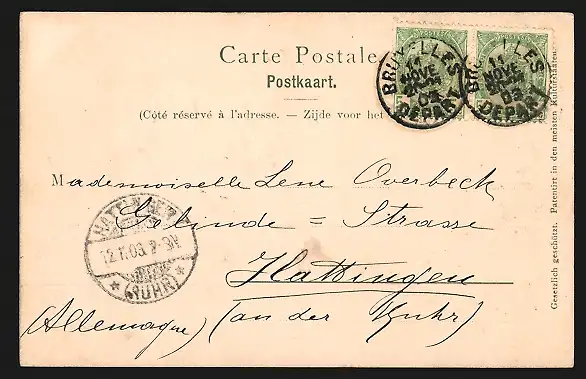 Carte Postale
Postkaart.
(Côté réservé à l'adresse. — Zijde voor het
BRUXELLES
11
NOVE
DEPART
BRUXELLES
11
NOVE
DEPART
Mademoiselle Lene Overbeck
Gelinde = Strasse
Hattingen
(Allemagne) (an der Ruhr)
HATTINGEN
12.11.03.2-3N
(RUHR)
Gesetzlich geschützt. Patentirt in den meisten Kulturstaaten.